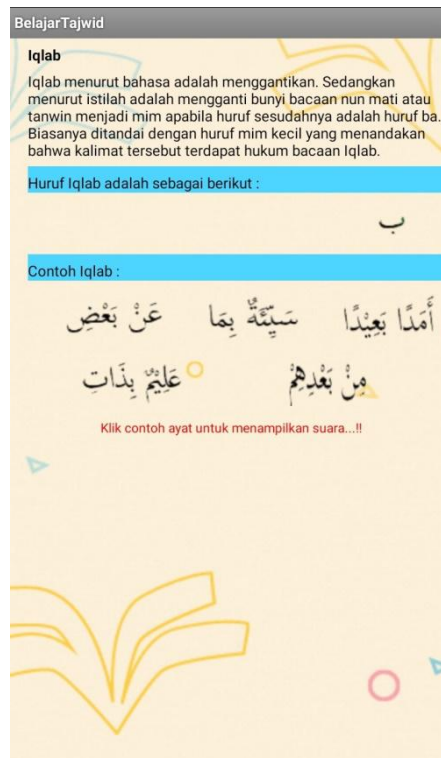 BelajarTajwid
Iqlab
Iqlab menurut bahasa adalah menggantikan. Sedangkan
menurut istilah adalah mengganti bunyi bacaan nun mati atau
tanwin menjadi mim apabila huruf sesudahnya adalah huruf ba.
Biasanya ditandai dengan huruf mim kecil yang menandakan
bahwa kalimat tersebut terdapat hukum bacaan Iqlab.
Huruf Iqlab adalah sebagai berikut :
ب
Contoh Iqlab :
أَمَدًا بَعِيْدًا سَيِّئَةٌ بِمَا عَنْ بَعْضِ
مِنْ بَعْدِهِمْ عَلِيْمٌ بِذَاتِ
Klik contoh ayat untuk menampilkan suara...!!